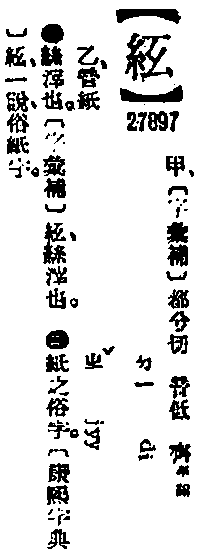 【𥿄】
27897
甲、〔字彙補〕都兮切 音低 齊平聲
ㄉㄧ di
乙、音紙 ㄓˇ jyy
㊀絲滓也。〔字彙補〕𥿄、絲滓也。㊁紙之俗字。〔康熙字典
〕𥿄、一說、俗紙字。